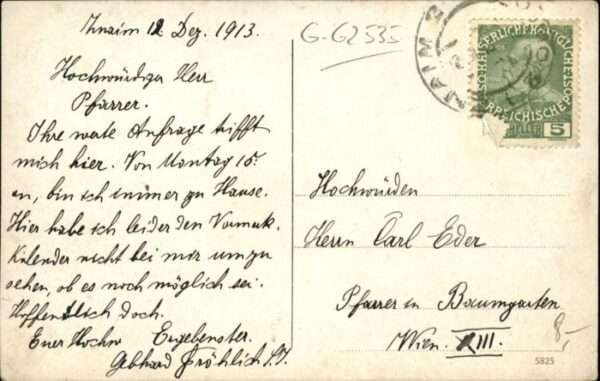 Znaim 12 Dez. 1913.
Hochwürdiger Herr
Pfarrer.
Ihre werte Anfrage trifft
mich hier. Von Montag 15.
an, bin ich immer zu Hause.
Hier habe ich leider den Vormerk-
Kalender nicht bei mir um zu
sehen, ob es noch möglich sei.
Hoffentlich doch.
Euer Hochw Ergebenster.
Gebhard Fröhlich S.J.
G-62535
ZNAIM 2
KAISERLICHE KÖNIGLICHE
ÖSTERREICHISCHE POST
5
Hochwürden
Herrn Carl Eder
Pfarrer in Baumgarten
Wien. XIII.
8,-
5825